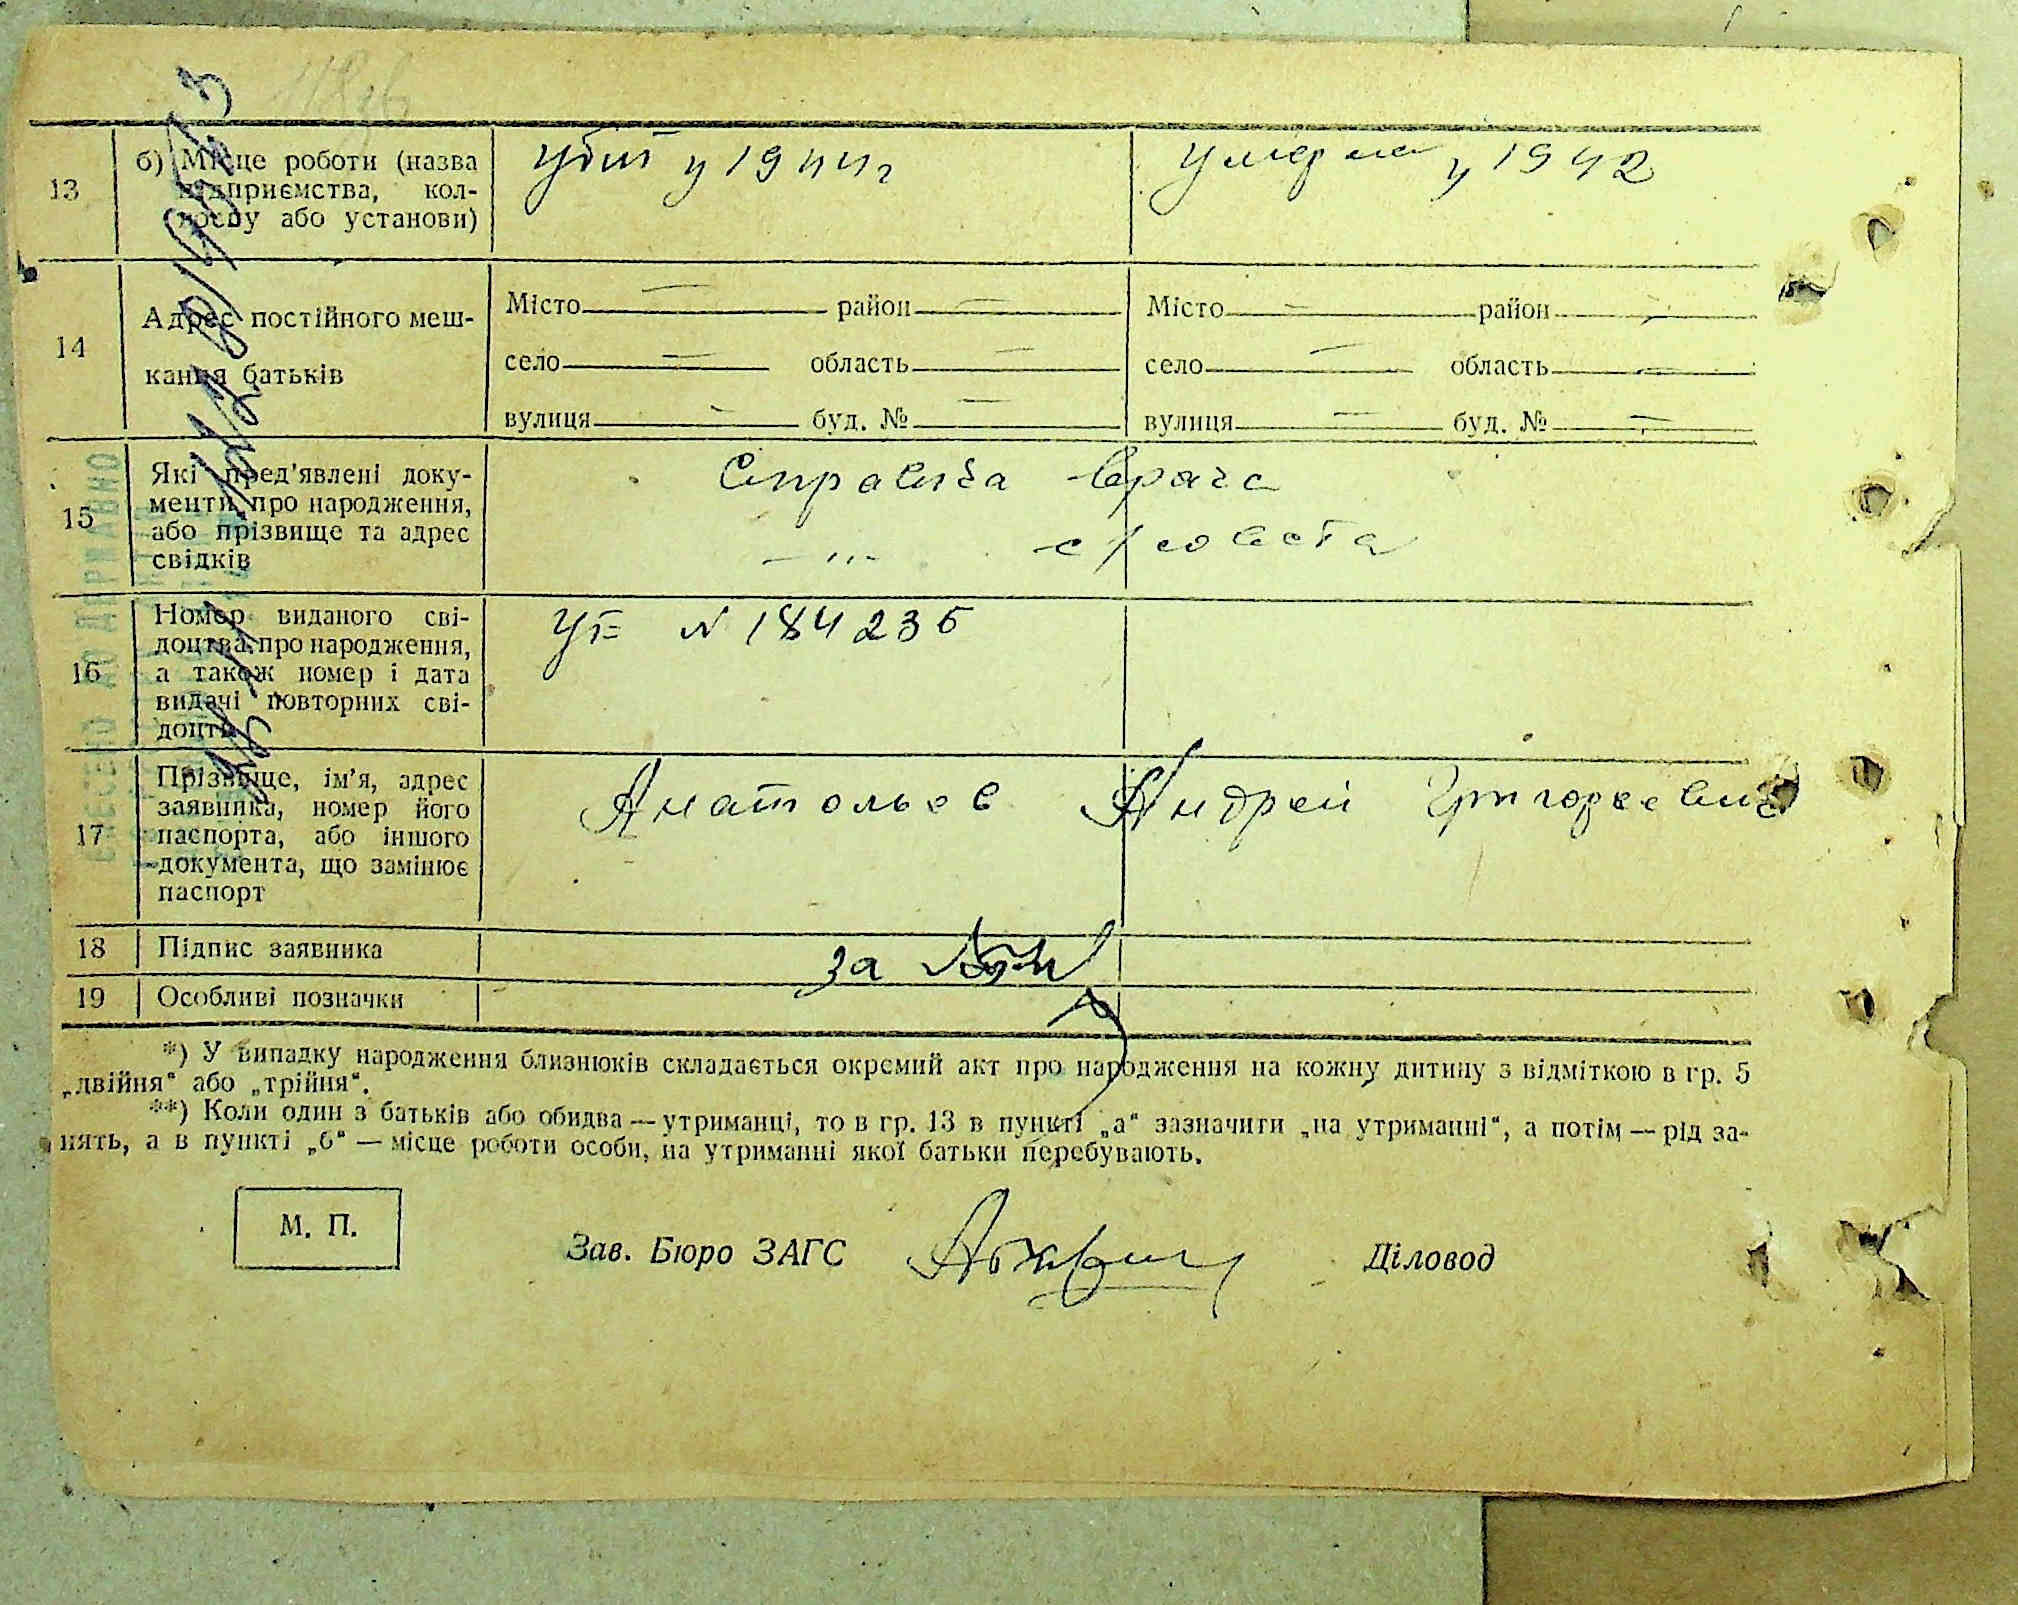 13
б) Місце роботи (назва
підприємства, кол-
госпу або установи)
Убит у 1944г
Умерла у 1942
14
Адрес постійного меш-
кання батьків
Місто — район —
село — область —
вулиця — буд. № —
Місто — район —
село — область —
вулиця — буд. № —
15
Які пред'явлені доку-
менти про народження,
або прізвище та адрес
свідків
Справка врача
— „ — с/совета
16
Номер виданого сві-
доцтва про народження,
а також номер і дата
видачі повторних сві-
доцтв
N 184235
17
Прізвище, ім'я, адрес
заявника, номер його
паспорта, або іншого
документа, що замінює
паспорт
Анатольев Андрей Григорьевич
18
Підпис заявника
за
19
Особливі позначки
*) У випадку народження близнюків складається окремий акт про народження на кожну дитину з відміткою в гр. 5
„двійня" або „трійня".
**) Коли один з батьків або обидва — утриманці, то в гр. 13 в пункті „а" зазначити „на утриманні", а потім — рід за-
нять, а в пункті „б" — місце роботи особи, на утриманні якої батьки перебувають.
М. П.
Зав. Бюро ЗАГС
Діловод